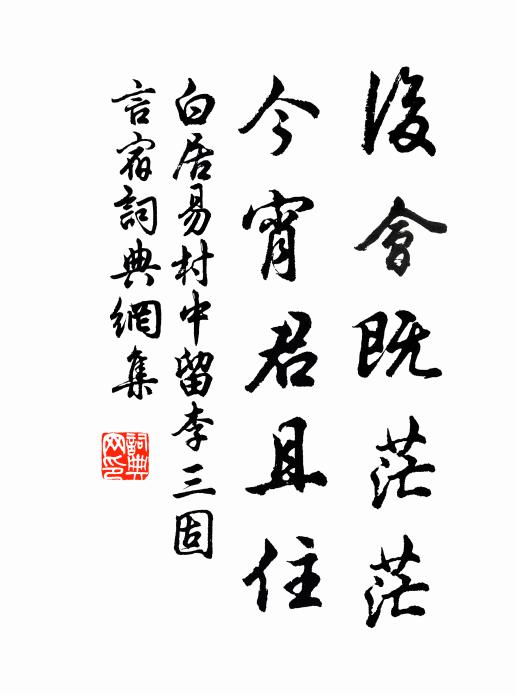 後會既茫茫
今宵君且住
白居易村中留李三固
言宿詞典網集
詞典
网印